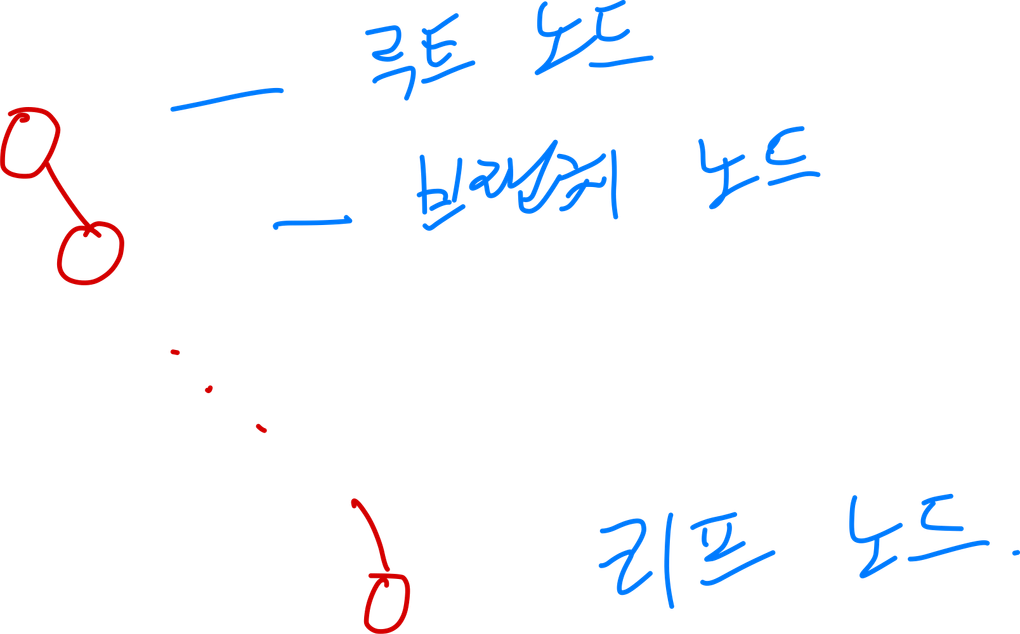 루트 노드
브랜치 노드
리프 노드.